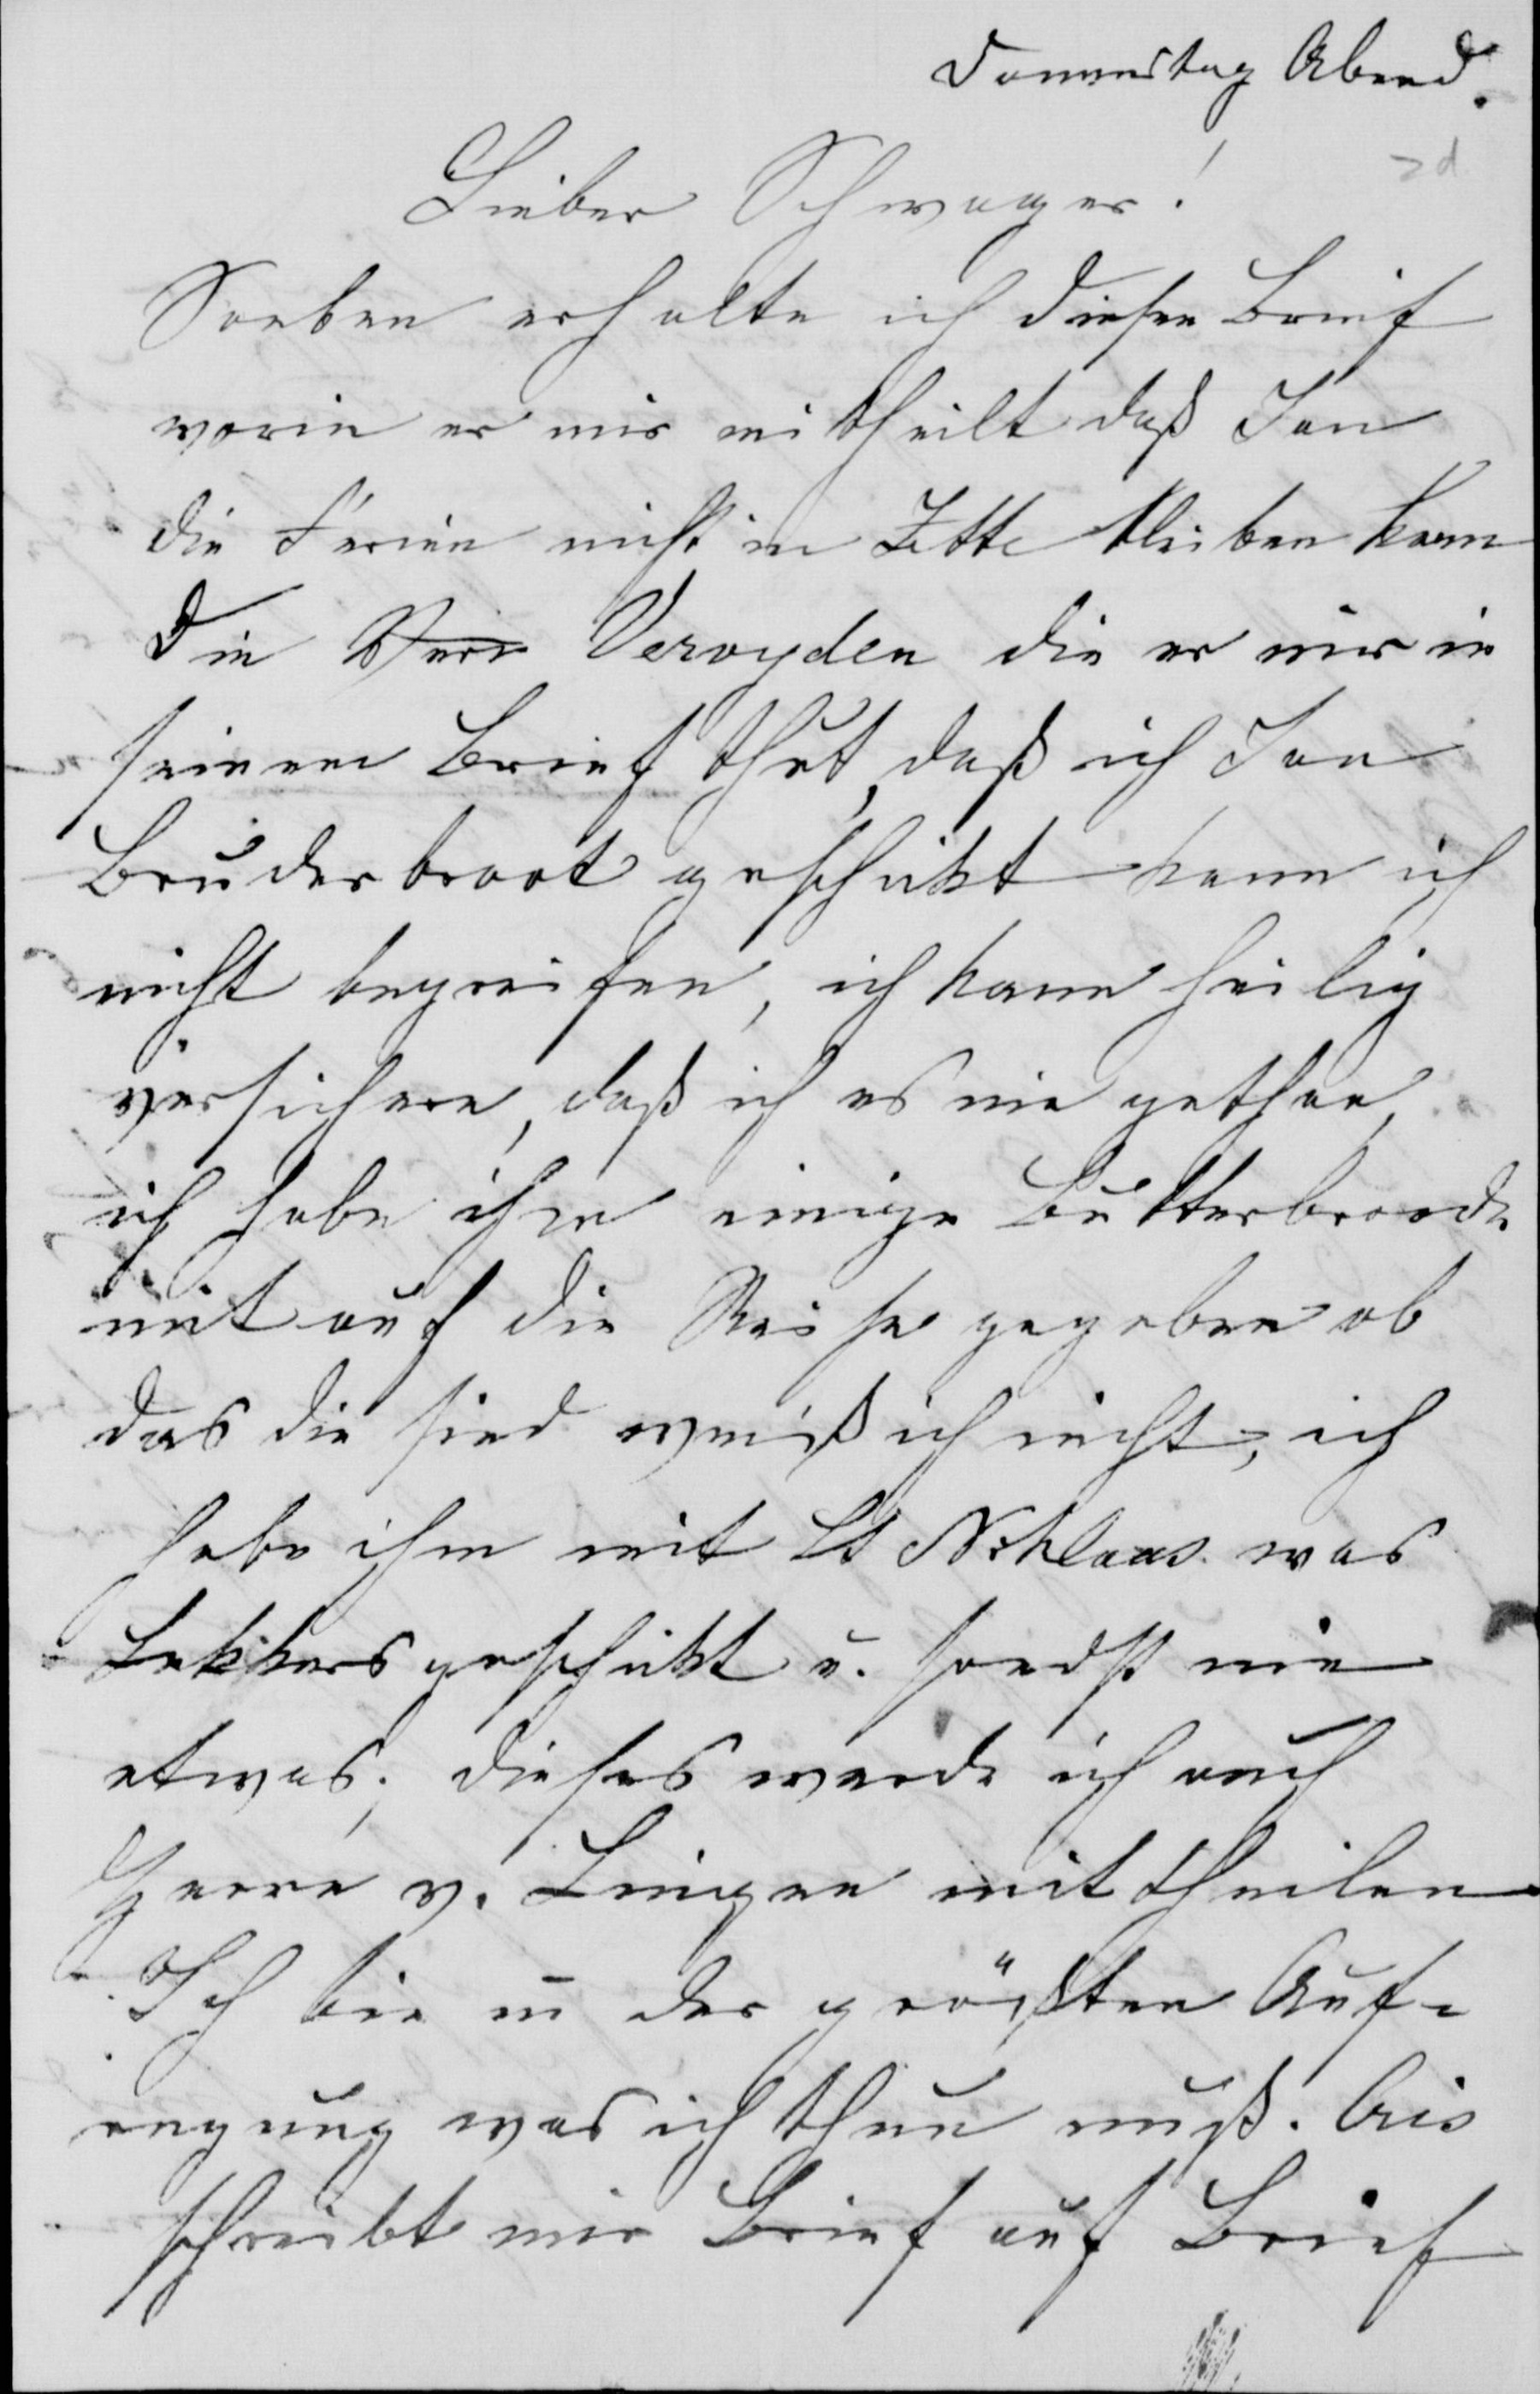 Donnerstag Abend.
Lieber Schwager!
Soeben erhalte ich diesen Brief
worin er mir mittheilt daß Jan
die Ferien nicht in Zette bleiben kann
Die Verwyden die er mir in
seinem Brief thut, daß ich Jan
Bruderbroot geschickt kann ich
nicht begreifen, ich kann heilig
versichern, daß ich es nie gethan,
ich habe ihm einige Butterbroode
mit auf die Reise gegeben ob
das die sind weiß ich nicht, ich
habe ihm mit St Niklaas was
Lekkers geschickt u. sonst nie
etwas; dieses werde ich auch
Herrn v. Lingen mittheilen
Ich bin in der größten Auf-
regung was ich thun muß. Cris
schreibt mir Brief auf Brief